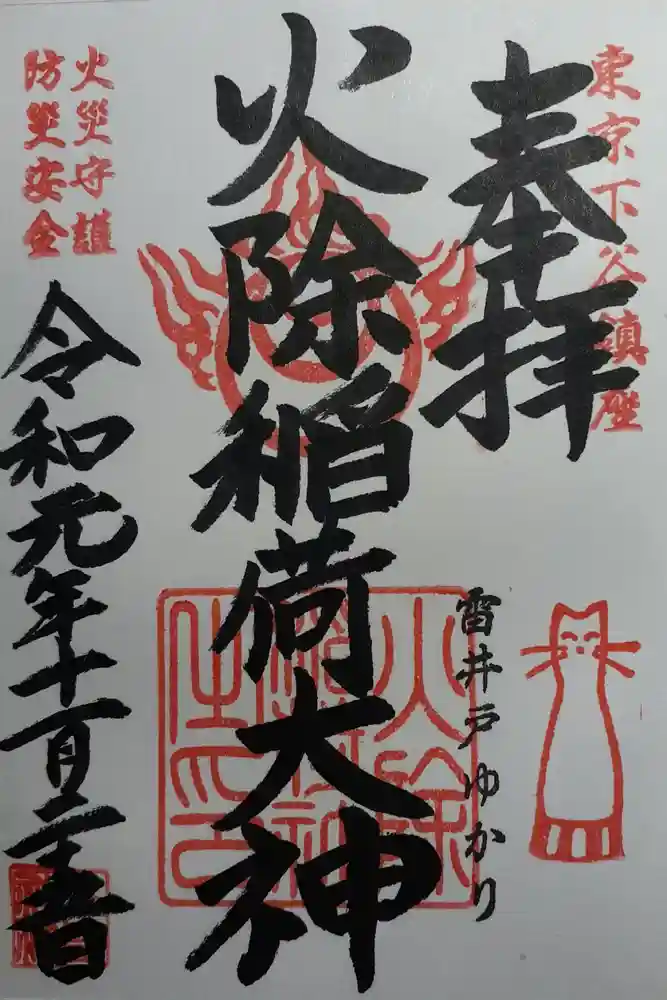 東京下谷鎮座
奉拝
火除稲荷大神
雷井戸ゆかり
火災守護
防災安全
令和元年十一月二十三日